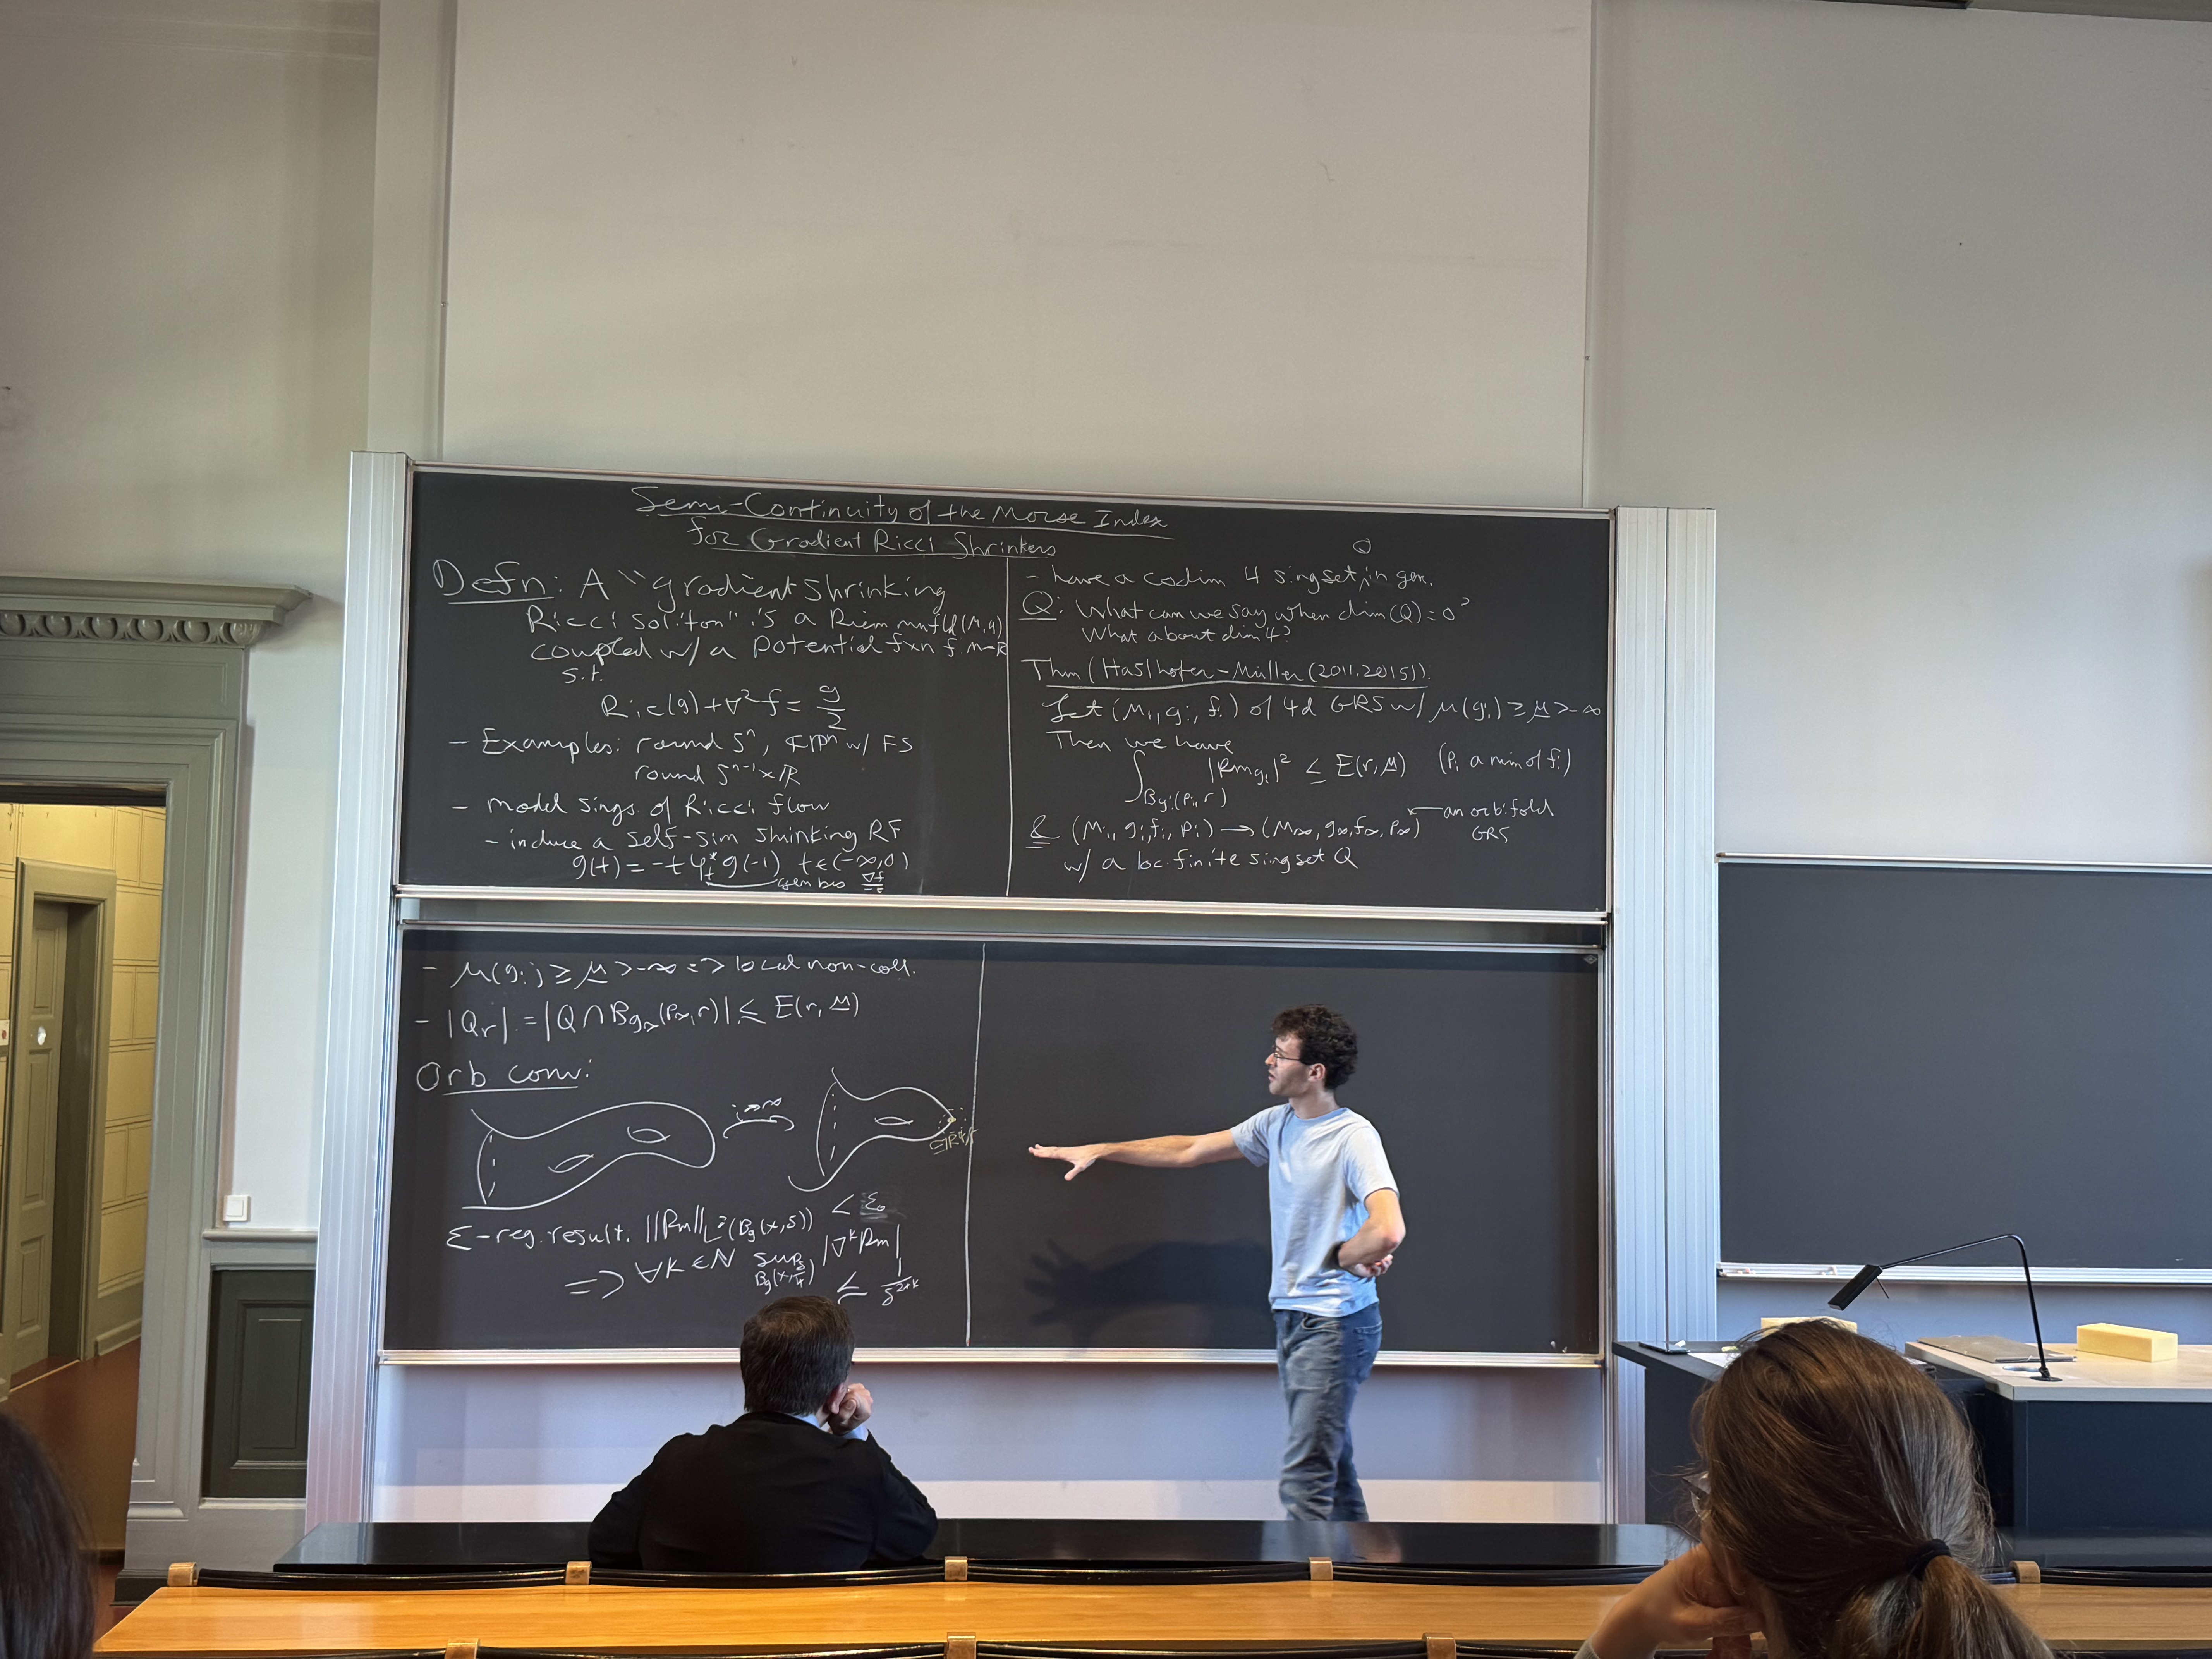 Semi-Continuity of the Morse Index
for Gradient Ricci Shrinkers
Defn: A "gradient shrinking
Ricci soliton" is a Riem mnfld (M,g)
coupled w/ a potential fxn f: M→R
s.t.
Ric(g)+∇²f = g/2
- Examples: round Sⁿ, CPⁿ w/ FS
round Sⁿ⁻¹×R
- model sings of Ricci flow
- induce a self-sim shrinking RF
g(t) = -t φₜ* g(-1) t∈(-∞,0)
gen by ∇f/-t
Q
- have a codim 4 sing set, in gen.
Q: What can we say when dim(Q)=0?
What about dim 4?
Thm (Haslhofer-Müller (2011, 2015)).
Let (Mᵢ, gᵢ, fᵢ) of 4d GRS w/ μ(gᵢ) ≥ μ > -∞
Then we have
∫_{B_{gᵢ}(pᵢ, r)} |Rm_{gᵢ}|² ≤ E(r, μ) (pᵢ a min of fᵢ)
& (Mᵢ, gᵢ, fᵢ, pᵢ) → (M∞, g∞, f∞, p∞) ← an orbifold
GRS
w/ a loc. finite sing set Q
- μ(gᵢ) ≥ μ > -∞ => local non-coll.
- |Qᵣ| = |Q ∩ B_{g∞}(p∞, r)| ≤ E(r, μ)
Orb conv:
i→∞
ε-reg. result. ||Rm||_{L²(B_g(x,δ))} < ε₀
=> ∀k∈N sup_{B_g(x,δ/4)} |∇ᵏRm|
≤ 1/δ²⁺ᵏ